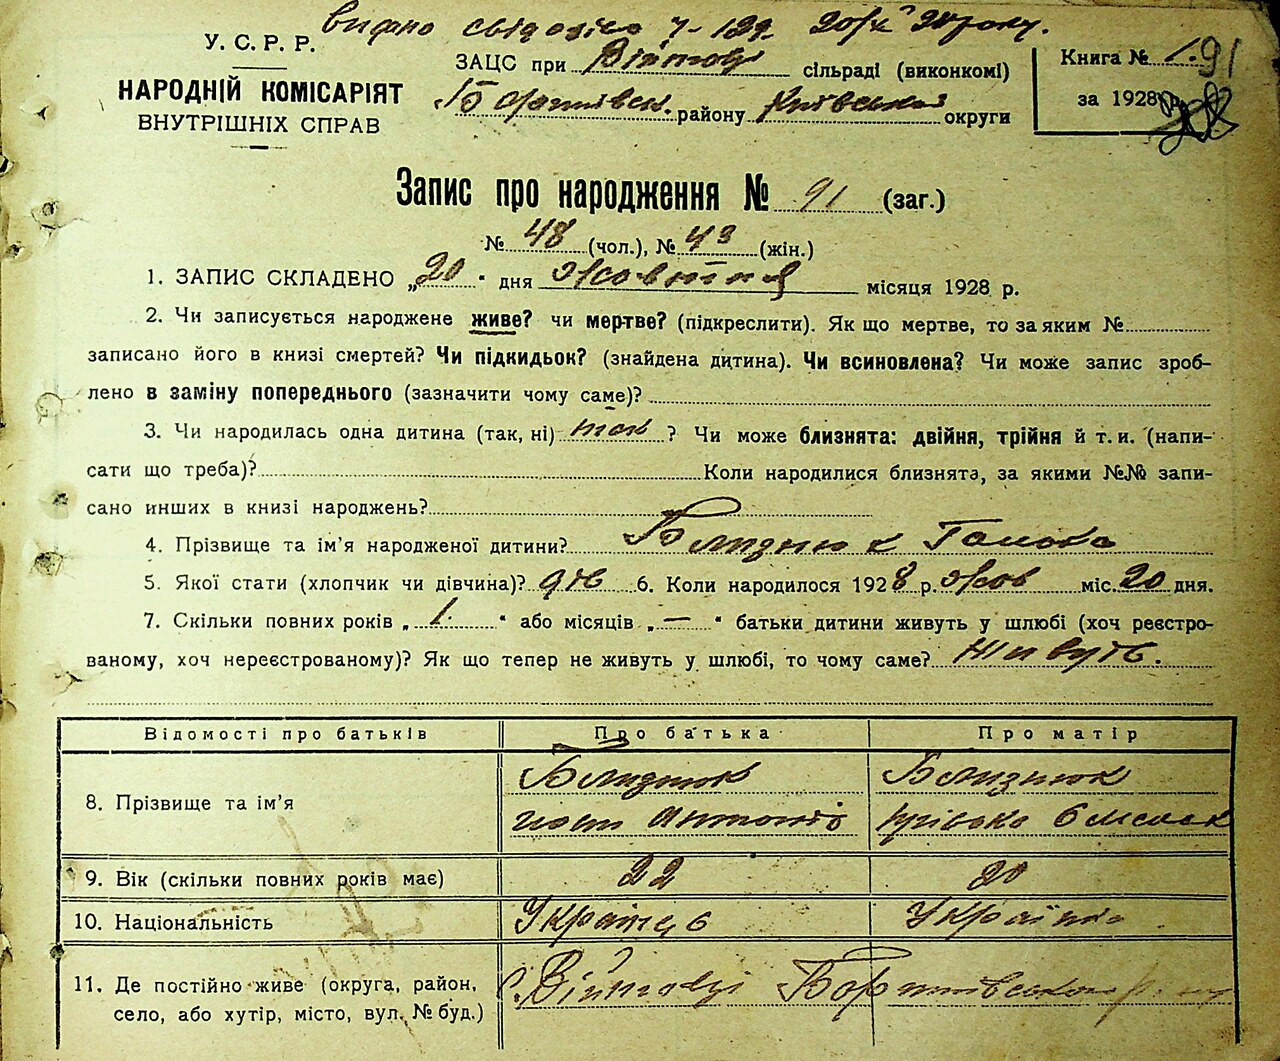 видано свідоцтво ч-129 20/X 28 року.
У. С. Р. Р.
НАРОДНІЙ КОМІСАРІЯТ
ВНУТРІШНІХ СПРАВ
ЗАЦС при Війтов сільраді (виконкомі)
Бориспівськ. району Київської округи
Книга № 1. 91
за 1928 р.
Запис про народження № 91 (заг.)
№ 48 (чол.), № 43 (жін.)
1. ЗАПИС СКЛАДЕНО „20" дня Жовтня місяця 1928 р.
2. Чи записується народжене живе? чи мертве? (підкреслити). Як що мертве, то за яким №
записано його в книзі смертей? Чи підкидьок? (знайдена дитина). Чи всиновлена? Чи може запис зроб-
лено в заміну попереднього (зазначити чому саме)?
3. Чи народилась одна дитина (так, ні) так ? Чи може близнята: двійня, трійня й т. и. (напи-
сати що треба)? Коли народилися близнята, за якими №№ запи-
сано инших в книзі народжень?
4. Прізвище та ім'я народженої дитини? Близнюк Галька
5. Якої стати (хлопчик чи дівчина)? дів 6. Коли народилося 1928 р. Жов міс. 20 дня.
7. Скільки повних років „ 1. " або місяців „ — " батьки дитини живуть у шлюбі (хоч реєстро-
ваному, хоч нереєстрованому)? Як що тепер не живуть у шлюбі, то чому саме? Живуть.
Відомості про батьків Про батька Про матір
8. Прізвище та ім'я Близнюк Антонів Близнюк Пріська
9. Вік (скільки повних років має) 22 20
10. Національність Українець Українка
11. Де постійно живе (округа, район,
село, або хутір, місто, вул. № буд.) с. Війтовці